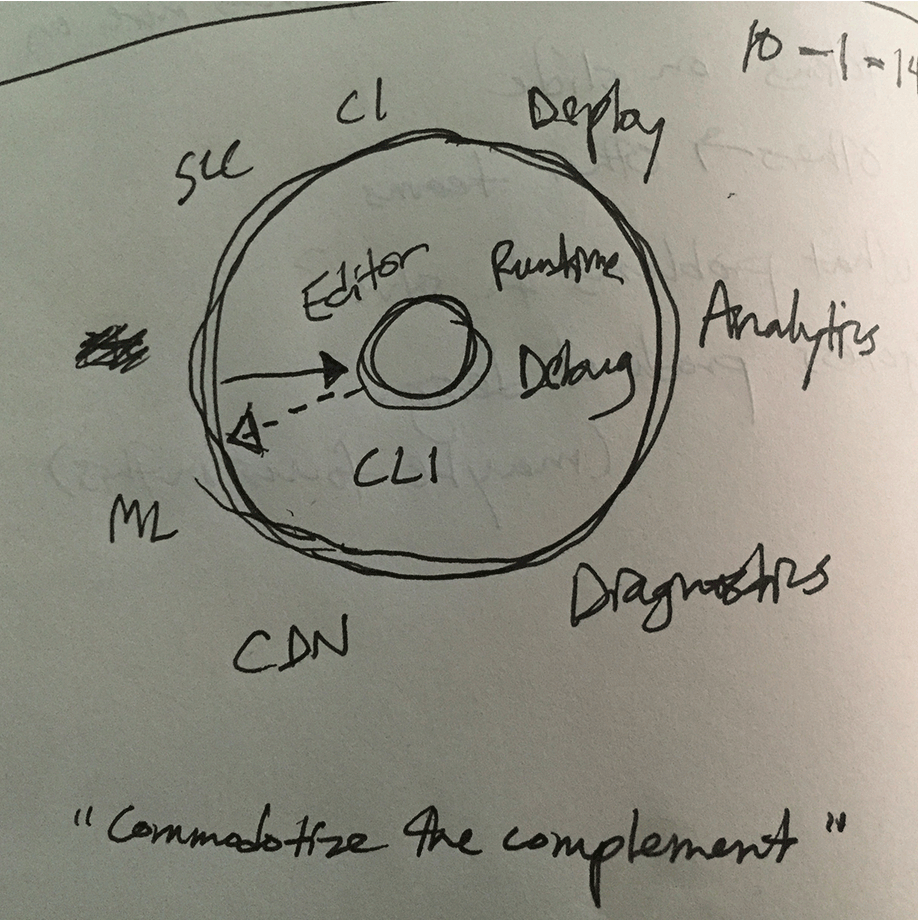 10-1-14
CI
Deploy
SCC
Editor
Runtime
Analytics
Debug
CLI
ML
Diagnostics
CDN
"Commodotize the complement"